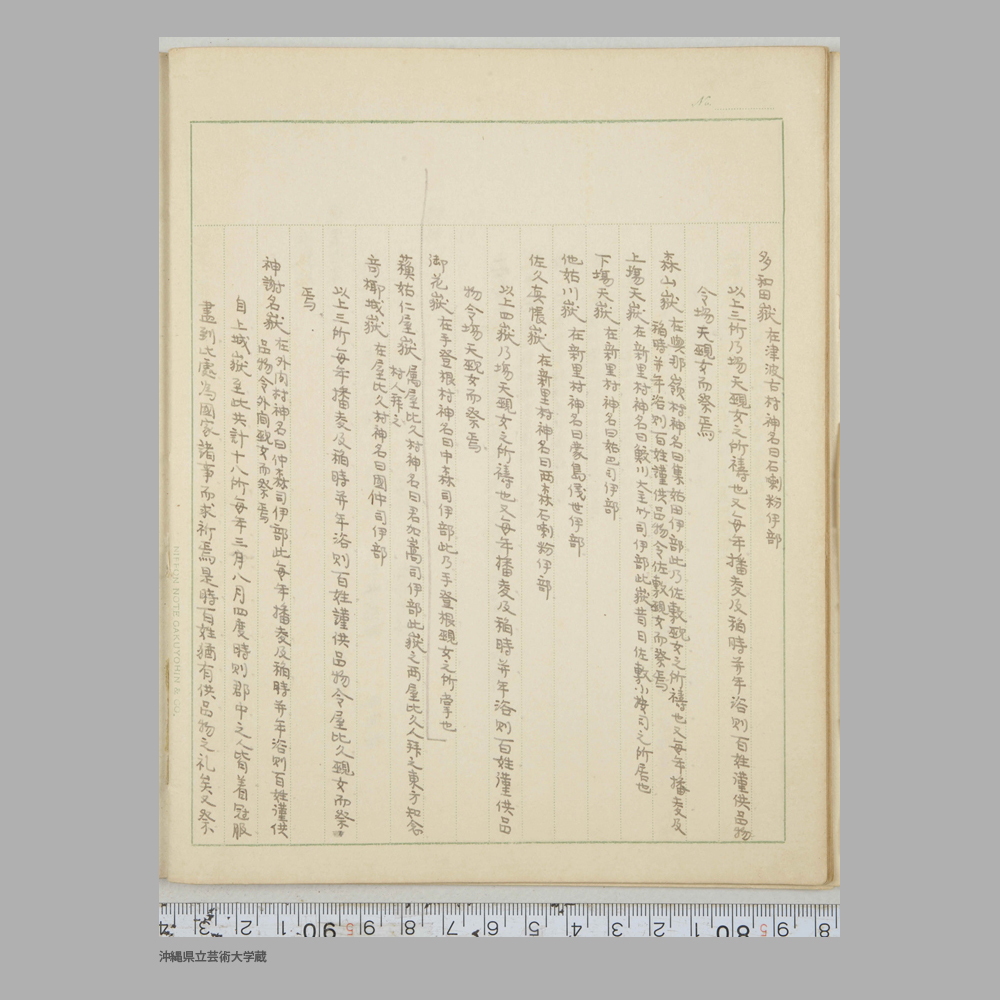 No.
多和田嶽 在津波古村神名曰石喇粉伊部
以上三所乃場天覡女之所禱也又毎年播麦及稲時并年浴則百姓謹供品物
令場天覡女而祭焉
森山嶽 在與那嶺村神名曰集姑田伊部此乃佐敷覡女之所禱也又毎年播麦及
稲時并年浴則百姓謹供品物令佐敷覡女而祭焉
上場天嶽 在新里村神名曰 川大圭竹司伊部此嶽昔日佐敷小按司之所居也
下場天嶽 在新里村神名曰 巴司伊部
他姑川嶽 在新里村神名曰 島 世伊部
佐久真悵嶽 在新里村神名曰両森石喇粉伊部
以上四嶽乃場天覡女之所禱也又毎年播麦及稲時并年浴則百姓謹供品
物令場天覡女而祭焉
御花嶽 在手登根村神名曰中森司伊部此乃手登根覡女之所掌也
蘋姑仁屋嶽 属屋比久村神名曰君加嵩司伊部此嶽之両屋比久人拜之東方知念
村人拜之
奇揶城嶽 在屋比久村神名曰國仲司伊部
以上三所毎年播麦及稲時并年浴則百姓謹供品物令屋比久覡女而祭
焉
神謝名嶽 在外間村神名曰仲森司伊部此毎年播麦及稲時并年浴則百姓謹供
品物令外間覡女而祭焉
自上城嶽至此共計十八所毎年三月八月四度時則郡中之人皆着冠服
盡到此處為國家諸事而求祈焉是時百姓 有供品物之礼矣又祭
NIPPON NOTE GAKUYOHIN & CO.
沖縄県立芸術大学蔵